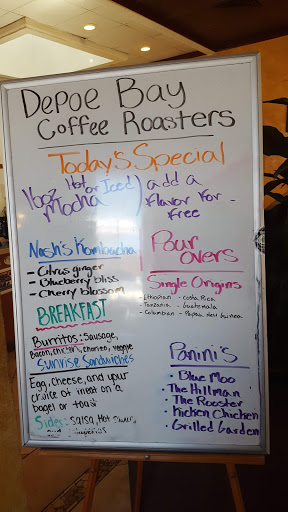 Depoe Bay
Coffee Roasters
Today's Special
16oz Hot or Iced Mocha
) add a
flavor for
free
Nash's Kombucha
- Citrus ginger
- Blueberry bliss
- Cherry blossom
BREAKFAST
Burritos: Sausage,
Bacon, chorizo, veggie
Sunrise Sandwiches
Egg, Cheese, and your
choice of meat on a
bagel or toast
Sides: Salsa, Hot
Pour
overs
Single Origins
- Ethiopian - Costa Rica
- Tanzania - Guatemala
- Colombian - Papua New Guinea
Panini's
• Blue Moo
• The Hillman
• The Rooster
• Kicken Chicken
• Grilled Garden